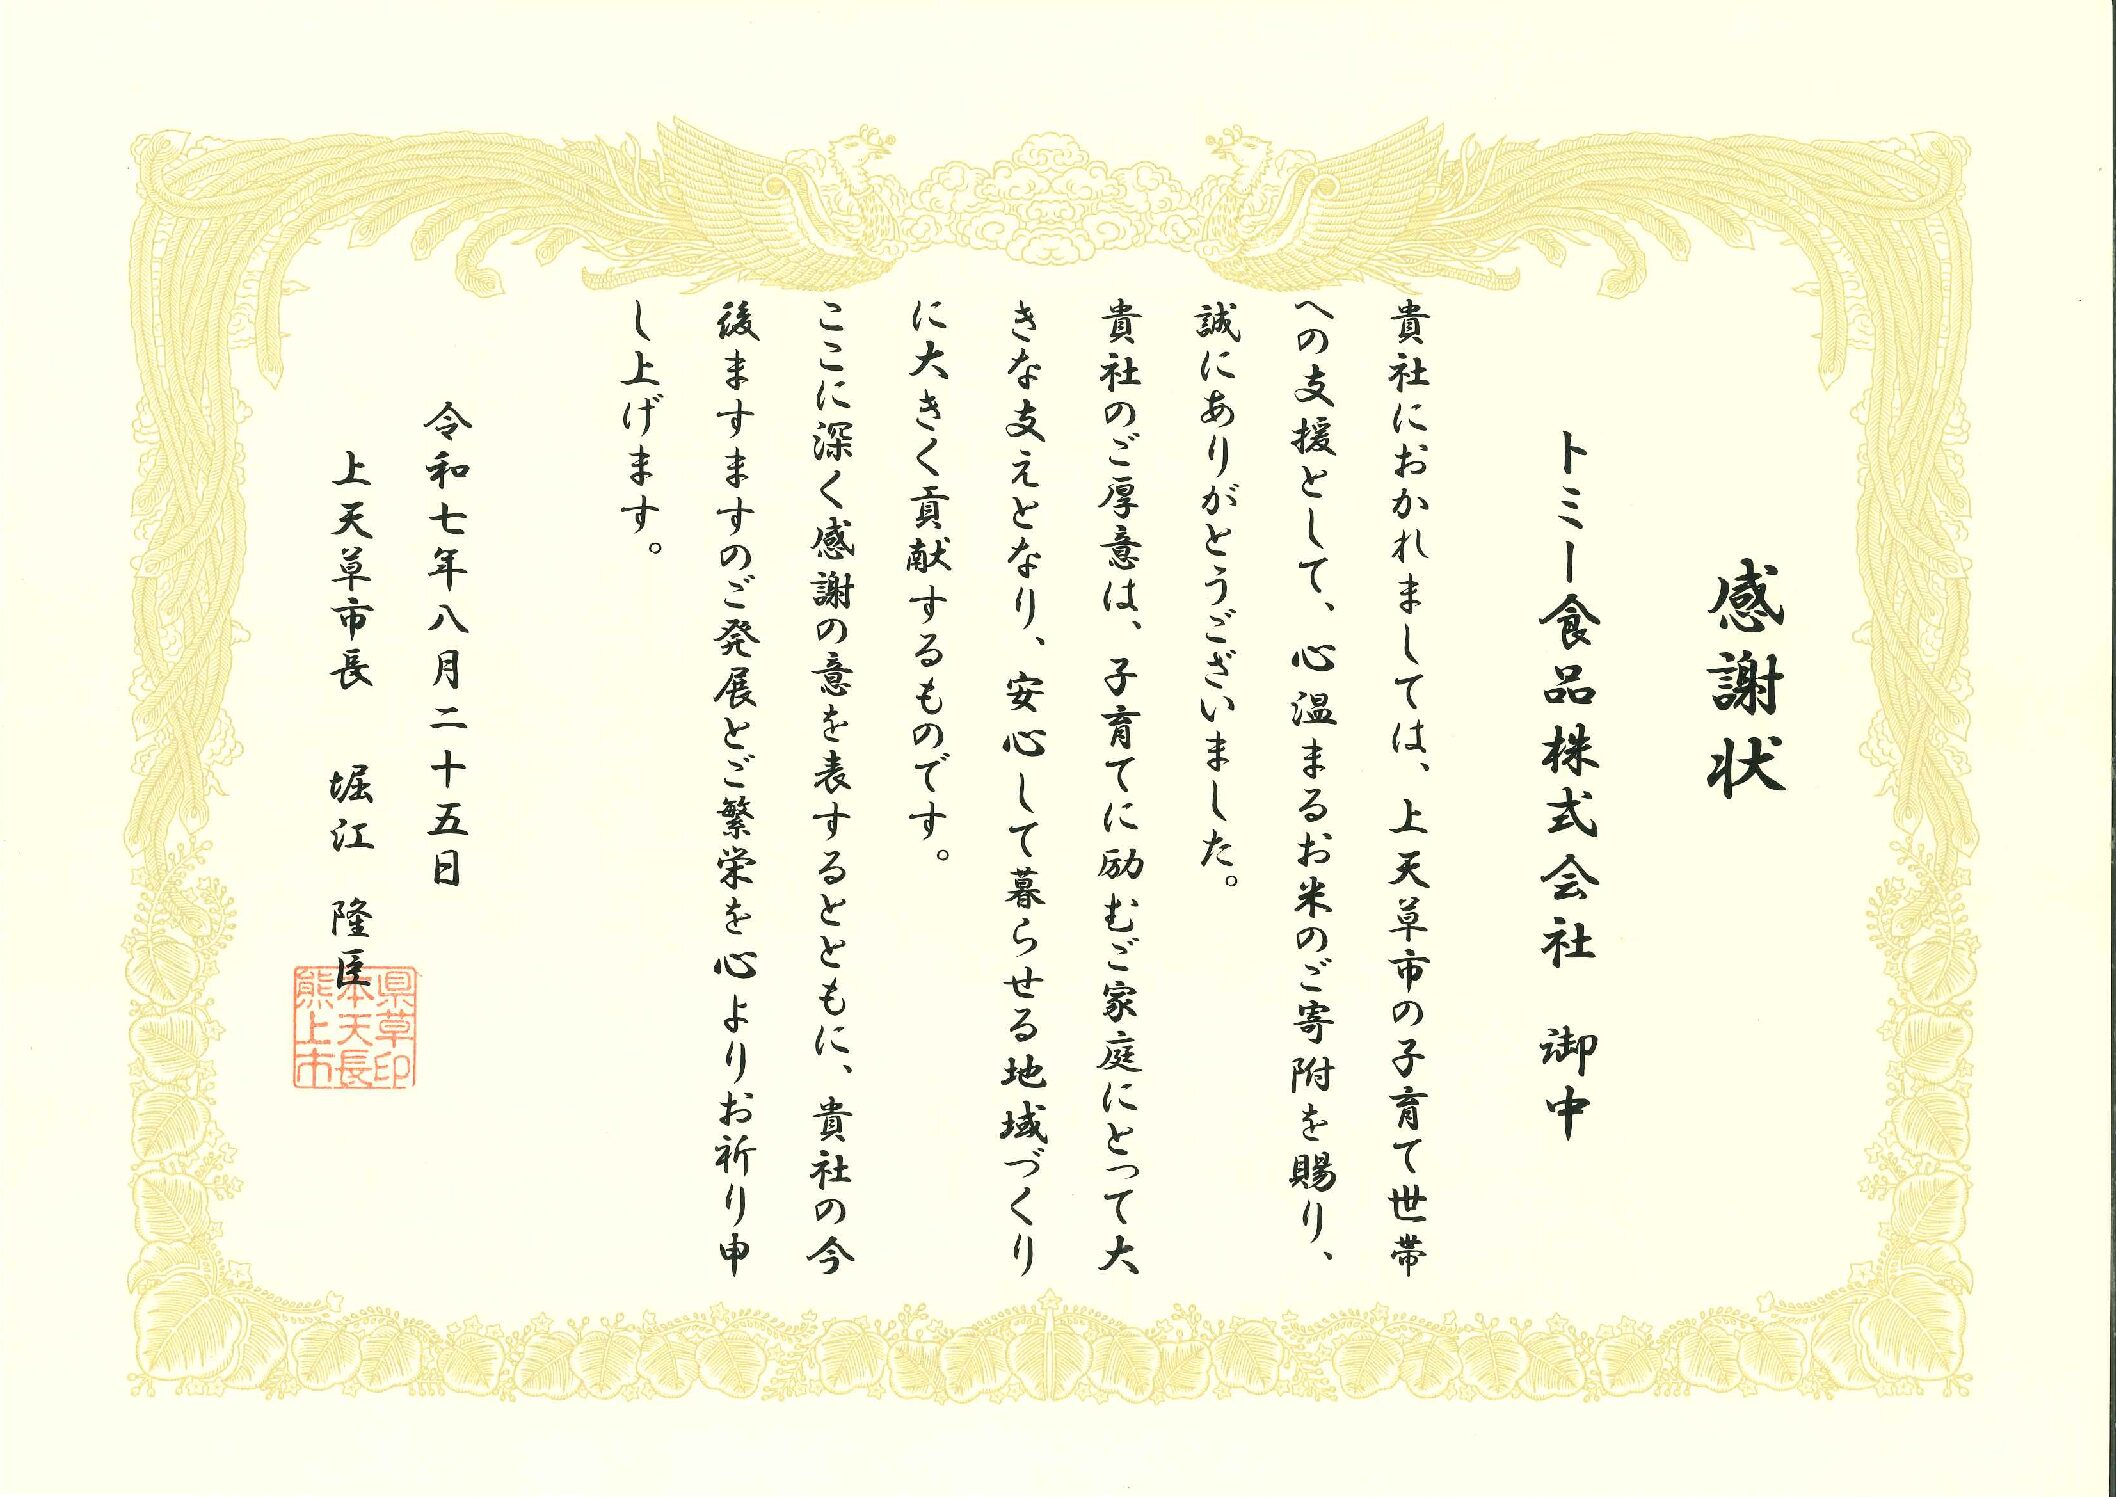 感謝状
トミー食品株式会社　御中
貴社におかれましては、上天草市の子育て世帯
への支援として、心温まるお米のご寄附を賜り、
誠にありがとうございました。
貴社のご厚意は、子育てに励むご家庭にとって大
きな支えとなり、安心して暮らせる地域づくり
に大きく貢献するものです。
ここに深く感謝の意を表するとともに、貴社の今
後ますますのご発展とご繁栄を心よりお祈り申
し上げます。
令和七年八月二十五日
上天草市長　堀江　隆臣
県草印
本天長
熊上市